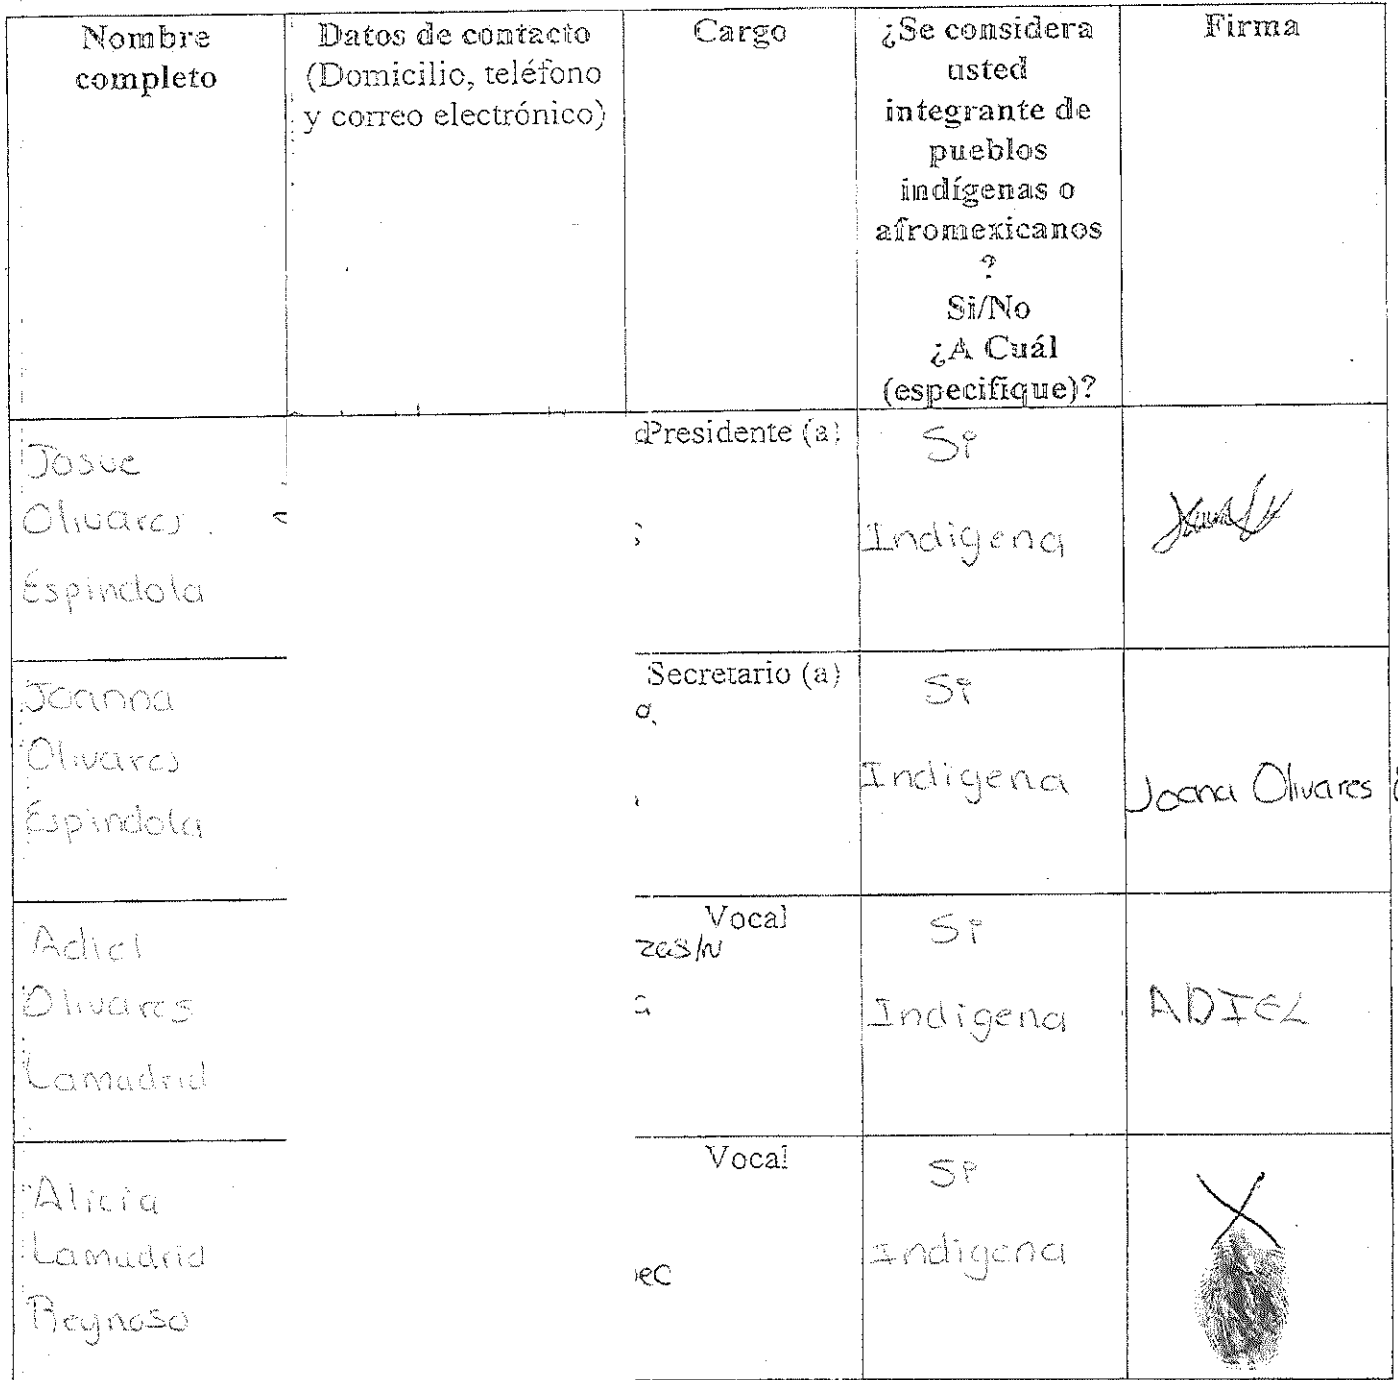 Nombre completo
Datos de contacto (Domicilio, teléfono y correo electrónico)
Cargo
¿Se considera usted integrante de pueblos indígenas o afromexicanos ? Si/No ¿A Cuál (especifique)?
Firma
Josue
Olivares
Espindola
Presidente (a)
Si
Indigena
Joanna
Olivares
Espindola
Secretario (a)
Si
Indigena
Joana Olivares
Adiel
Olivares
Lamadrid
Vocal
zas/N
Si
Indigena
ADIEL
Alicia
Lamadrid
Reynoso
Vocal
ec
Si
Indigena
X